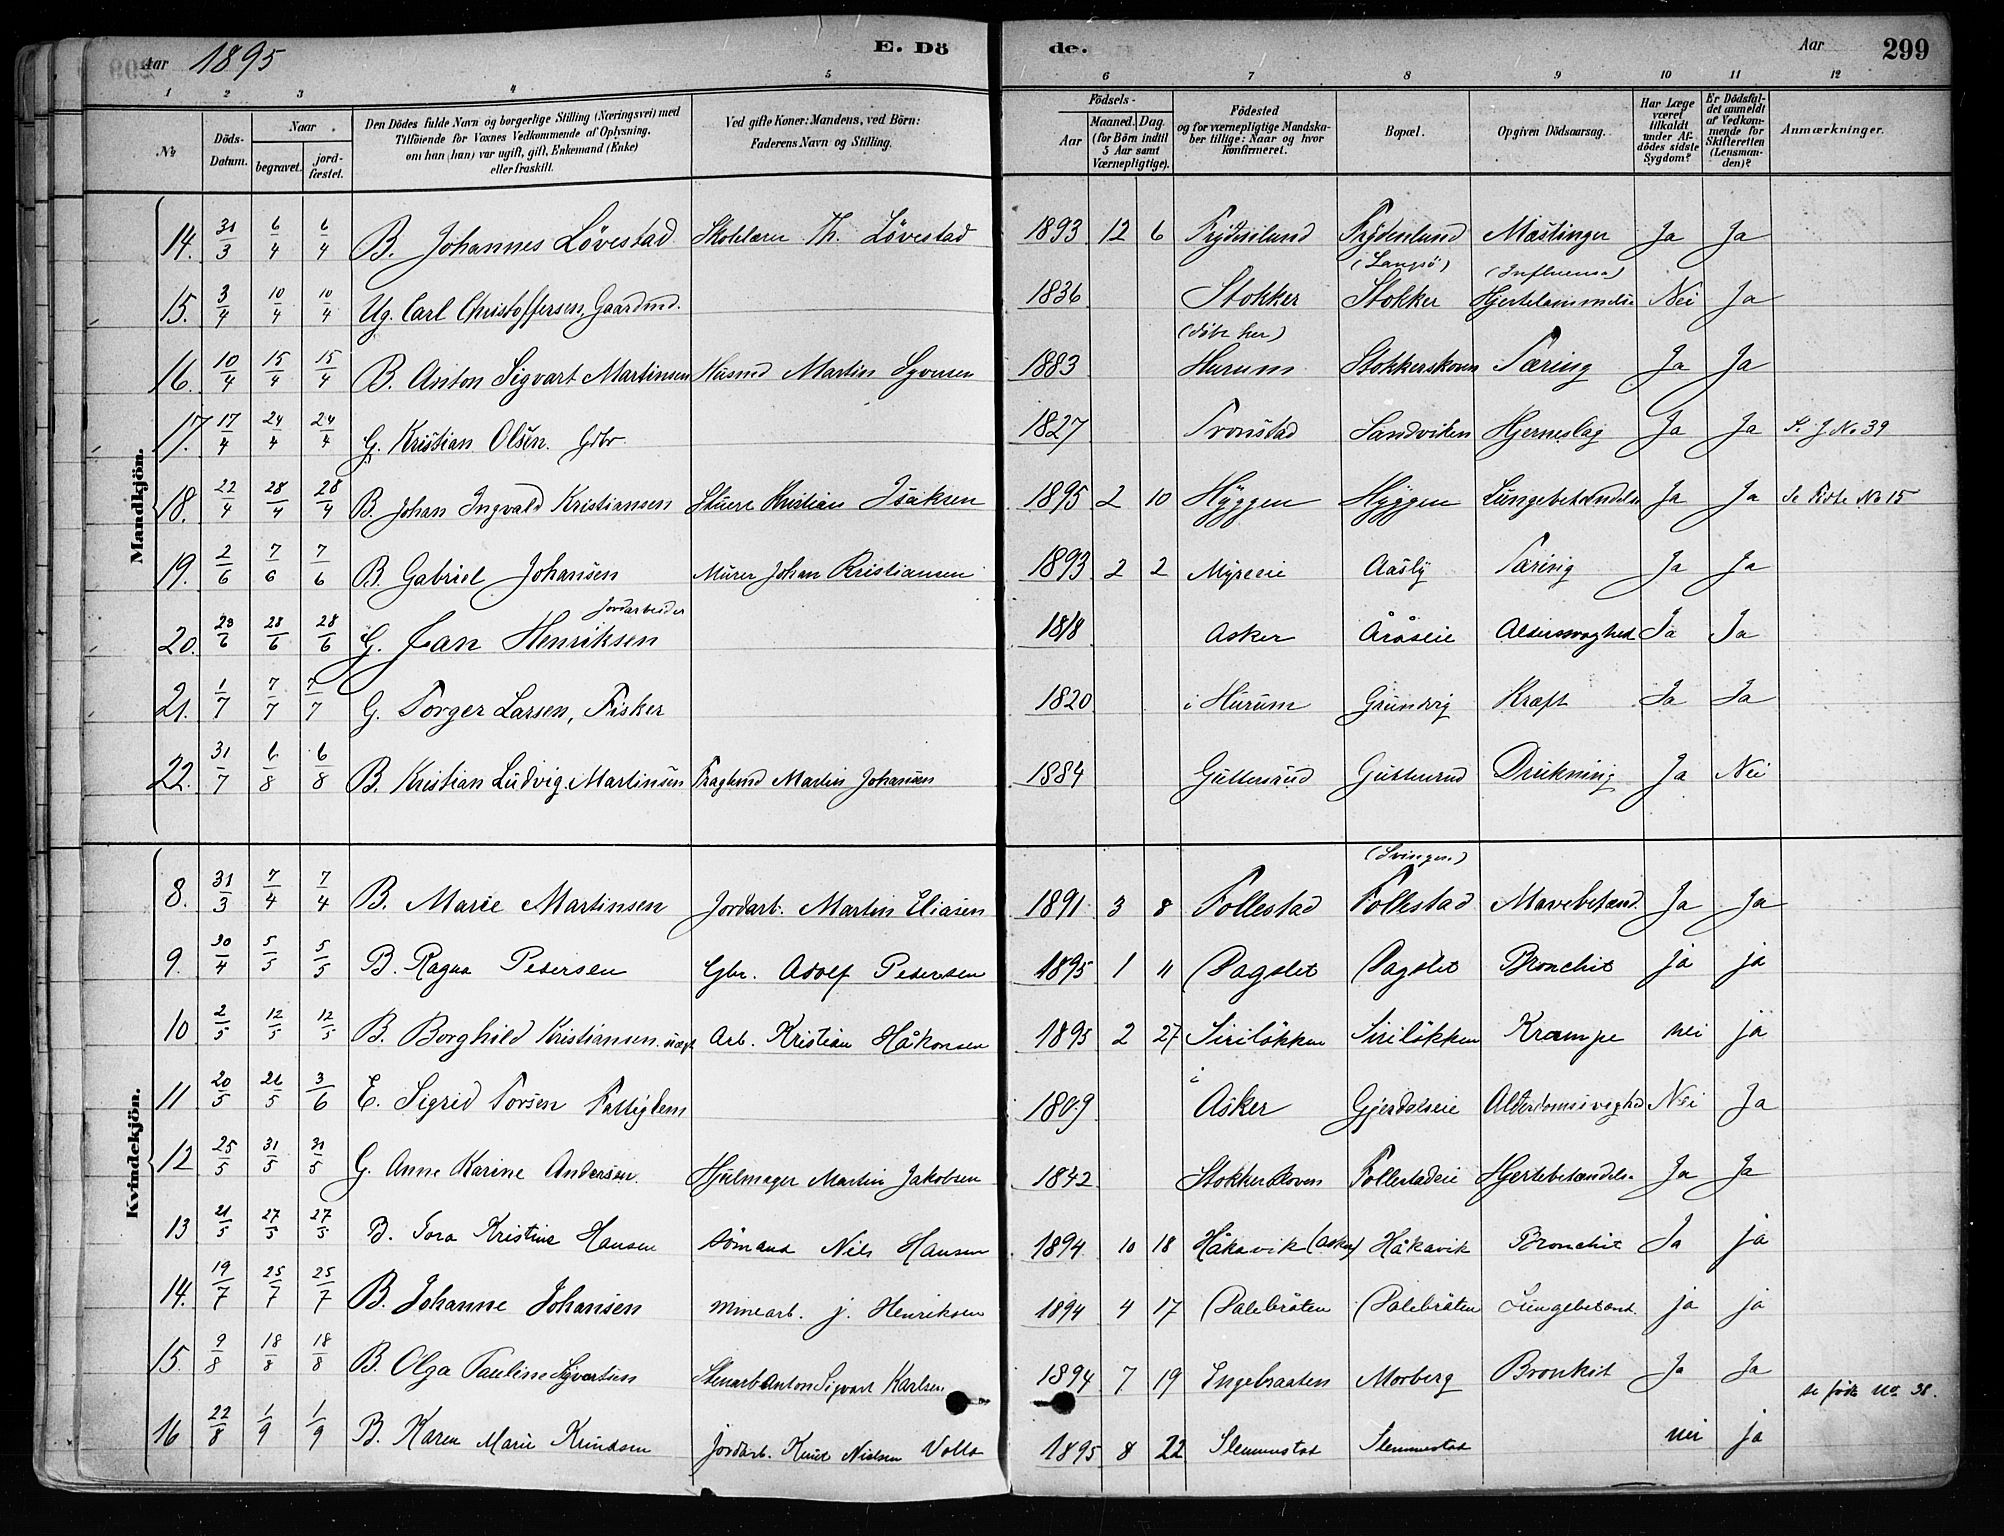 Aar 1895 E. Döde. Aar 299
1 2 3 4 5 6 7 8 9 10 11 12
No Döds-Datum. Naar begravet. jordfæstet. Den Dödes fulde Navn og borgerlige Stilling (Næringsvei) med Tilföiende for Voxnes Vedkommende af Oplysning, om han (hun) var ugift, gift, Enkemand (Enke) eller fraskilt. Ved gifte Koner: Mandens, ved Börn: Faderens Navn og Stilling. Födsels- Aar Maaned. Dag (for Börn indtil 5 Aar samt Værnepligtige). Födested og for værnepligtige Mandskaber tillige: Naar og hvor konfirmeret. Bopæl. Opgiven Dödsaarsag. Har Læge været tilkaldt under Afdödes sidste Sygdom? Er Dödsfaldet anmeldt af Vedkommende for Skifteretten (Lensmanden)? Anmærkninger.
Mandkjön.
14. 31/3 6/4 6/4 B. Johannes Lövestad Skolelærer Th. Lövestad 1893 12 6 Frydenlund Frydenlund Mæslinger Ja Ja
15. 3/4 10/4 10/4 Ug. Carl Christoffersen, Gaardmd. 1836 Stokker (Langsö) Stokker (Influensa) Hjertelammelse Nei Ja
16. 10/4 15/4 15/4 B. Anton Sigvart Martinsen Husmd Martin Syversen 1883 (döbt her) Hurum Stokkerskoven Tæring Ja Ja
17. 17/4 24/4 24/4 G. Kristian Olsen. Gdbr 1827 Tronstad Sandviken Hjerneslag Ja Ja Se J No 39
18. 22/4 28/4 28/4 B. Johan Ingvald Kristiansen Stuere Kristian Isaksen 1895 2 10 Hyggen Hyggen Lungebetændelse Ja Ja Se Födte No 15
19. 2/6 7/6 7/6 B. Gabriel Johansen Murer Johan Kristiansen 1893 2 2 Myreeie Aasly Tæring Ja Ja
20. 23/6 28/6 28/6 G. Jan Henriksen Jordarbeider 1818 Asker Åråseie Alderssvaghed Ja Ja
21. 1/7 7/7 7/7 G. Torger Larsen, Fisker 1820 i Hurum Grundvig Kræft Ja Ja
22. 31/7 6/8 6/8 B. Kristian Ludvig Martinsen Martin Johansen 1884 Guttersrud Guttersrud Drukning Ja Nei
Kvindekjön.
8. 31/3 7/4 7/4 B. Marie Martinsen Jordarb. Martin Eliasen 1891 3 8 Follestad (Svingen) Follestad Mavebetænd. Ja Ja
9. 30/4 5/5 5/5 B. Ragna Pedersen Gbr. Adolf Pedersen 1895 1 11 Dagslet Dagslet Bronchit ja ja
10 2/5 12/5 12/5 B. Borghild Kristiansen uægt Arb. Kristian Håkonsen 1895 2 27 Siriløkken Siriløkken Krampe nei ja
11 20/5 26/5 3/6 E. Sigrid Torsen Fattiglem 1809 i Asker Gjerdalseie Alderdomssvaghed Nei Ja
12 25/5 31/5 31/5 G. Anne Karine Andersen. Hjulmager Martin Jakobsen 1842 Stokkerskoven Follestadeie Hjertebetændelse Ja Ja
13 21/5 27/5 27/5 B. Tora Kristine Hansen sömand Nils Hansen 1894 10 18 Håkavik (Asker) Håkavik Bronchit Ja ja
14. 19/7 25/7 25/7 B. Johanne Johansen Minearb. J. Henriksen 1894 4 17 Dalebråten Dalebråten Lungebetænd. ja ja
15. 9/8 18/8 18/8 B. Olga Pauline Sigvartsen Stenarb Anton Sigvart Karlsen 1894 7 19 Engebraaten Morberg Bronkit Ja Ja
16 22/8 1/9 1/9 B. Karen Marie Knudsen Jordarb. Knud Nielsen Volla 1895 8 22 Slemmestad Slemmestad nei ja se födte no. 38.